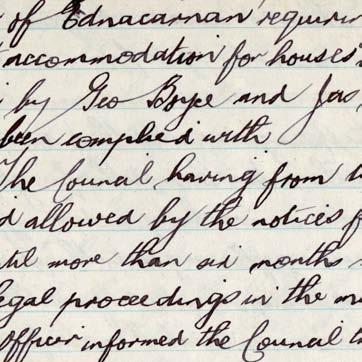 of Ednacarnan requirin
accommodation for houses
by Geo Boyce and Jas
been complied with
The Council having from
d allowed by the notices f
til more than six months
legal proceedings in the m
officer informed the Council t